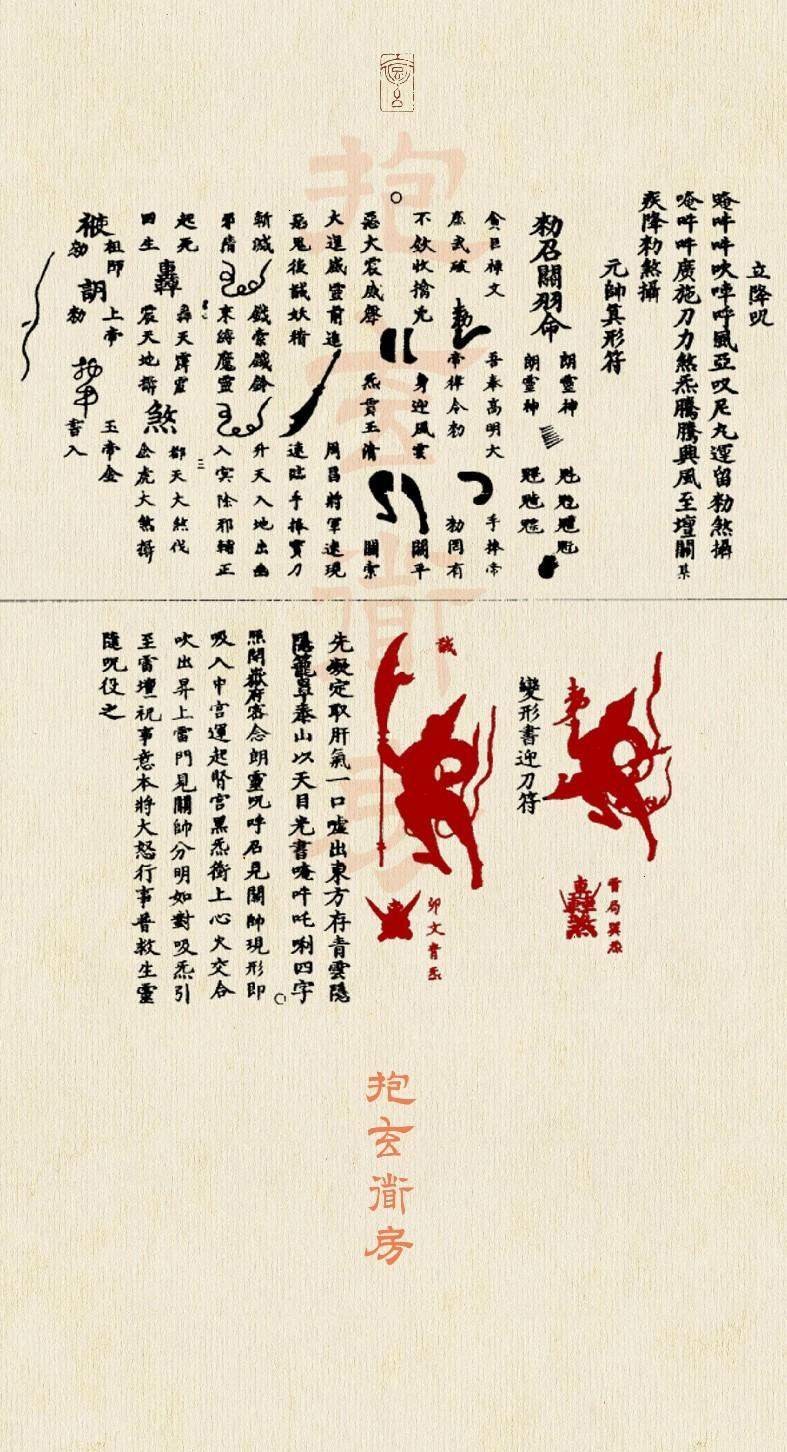 立降咒
唵吽吽吹㖅呼風亞叹尼九運留勑煞攝
唵吽吽廣施刀力煞炁騰騰興風至壇關某
疾降勑煞攝
元帥真形符
勑召關羽命
朗靈神
朗靈神
貪巨祿文
吾奉高明大
手捧帝
廉武破
帝律令勑
勑罡有
不欽收擒先
身迎風雲
關平
惡大震威聲
炁貫玉清
關索
大逞威靈前進
周昌將軍速現
惡鬼後誠妖精
速臨手捧寶刀
斬滅
鐵索鐵鈴
升天入地出幽
邪階
束縛魔靈
入冥除邪輔正
起死
轟天霹靂
都天大煞伐
三
回生
轟
震天地攝
煞
金虎大煞攝
祖師
上帝
玉帝金
勑
勑
書入
雷局巽炁
轟
煞
變形書迎刀符
卯文青炁
先凝定取肝氣一口噓出東方存青雲隱
隱籠罩泰山以天目光書唵吽吒唎四字
照開嶽府密念朗靈咒呼召見關帥現形即
吸入中宮運起腎宮黑炁衝上心火交合
吹出昇上雷門見關帥分明如對吸炁引
至雷壇祝事意本將大怒行事普救生靈
隨咒役之
抱玄衜房